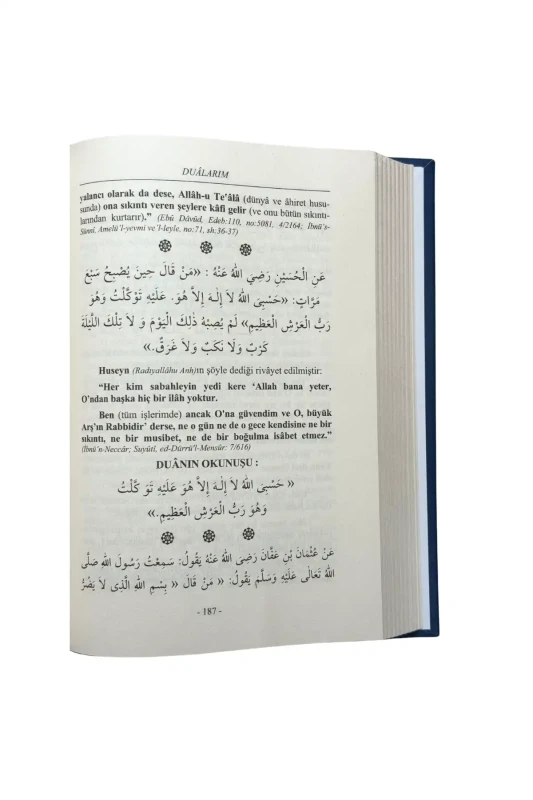 DUÂLARIM
yalancı olarak da dese, Allâh-u Te'âlâ (dünya ve âhiret husu-
sunda) ona sıkıntı veren şeylere kâfi gelir (ve onu bütün sıkıntı-
larından kurtarır)." (Ebû Dâvûd, Edeb:110, no:5081, 4/2164; İbnü's-
Sünnî, Amelü'l-yevmi ve'l-leyle, no:71, sh:36-37)
عَنِ الْحُسَيْنِ رَضِيَ اللهُ عَنْهُ : «مَنْ قَالَ حِينَ يُصْبِحُ سَبْعَ
مَرَّاتٍ: «حَسْبِيَ اللهُ لَا إِلٰهَ إِلَّا هُوَ. عَلَيْهِ تَوَكَّلْتُ وَهُوَ
رَبُّ الْعَرْشِ الْعَظِيمِ» لَمْ يُصِبْهُ ذٰلِكَ الْيَوْمَ وَ لَا تِلْكَ اللَّيْلَةَ
كَرْبٌ وَلَا نَكَبٌ وَلَا غَرَقٌ.»
Huseyn (Radıyallâhu Anh)ın şöyle dediği rivâyet edilmiştir:
"Her kim sabahleyin yedi kere 'Allah bana yeter,
O'ndan başka hiç bir ilâh yoktur.
Ben (tüm işlerimde) ancak O'na güvendim ve O, büyük
Arş'ın Rabbidir' derse, ne o gün ne de o gece kendisine ne bir
sıkıntı, ne bir musibet, ne de bir boğulma isâbet etmez."
(İbnü'n-Neccâr; Suyûtî, ed-Dürrü'l-Mensûr: 7/616)
DUÂNIN OKUNUŞU :
« حَسْبِيَ اللهُ لَا إِلٰهَ إِلَّا هُوَ عَلَيْهِ تَوَكَّلْتُ
وَهُوَ رَبُّ الْعَرْشِ الْعَظِيمِ.»
عَنْ عُثْمَانَ بْنِ عَفَّانَ رَضِيَ اللهُ عَنْهُ يَقُولُ: سَمِعْتُ رَسُولَ اللهِ صَلَّى
اللهُ تَعَالَى عَلَيْهِ وَسَلَّمَ يَقُولُ: « مَنْ قَالَ « بِسْمِ اللهِ الَّذِى لَا يَضُرُّ
- 187 -